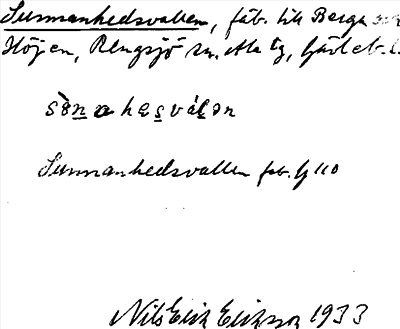 Sunnanhedsvallen, fäb. till Berga och
Höjen, Rengsjö sn, Ala tg, Gävleb. l.
sònahesválen
Sunnanhedsvallen fäb. G 110
Nils Erik Eriksson 1933